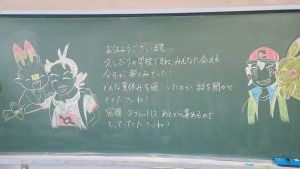 おはようございます。
久しぶりの学校ですね。みんなに会える
今日が楽しみでした!
どんな夏休みを過ごしたのか、話を聞かせ
てくださいね!
宿題、タブレットは あとから集めるので
もって てくださいね!